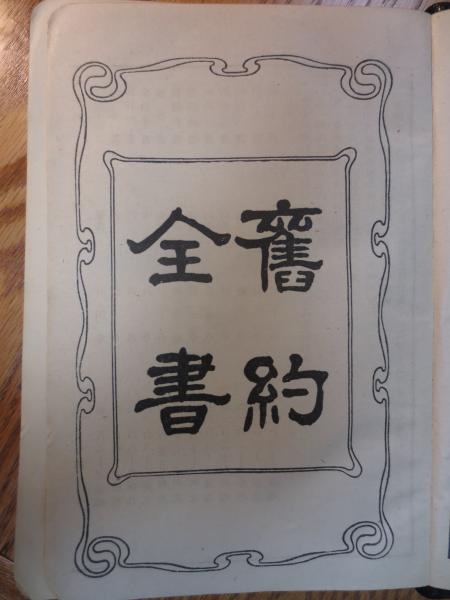 舊約
全書